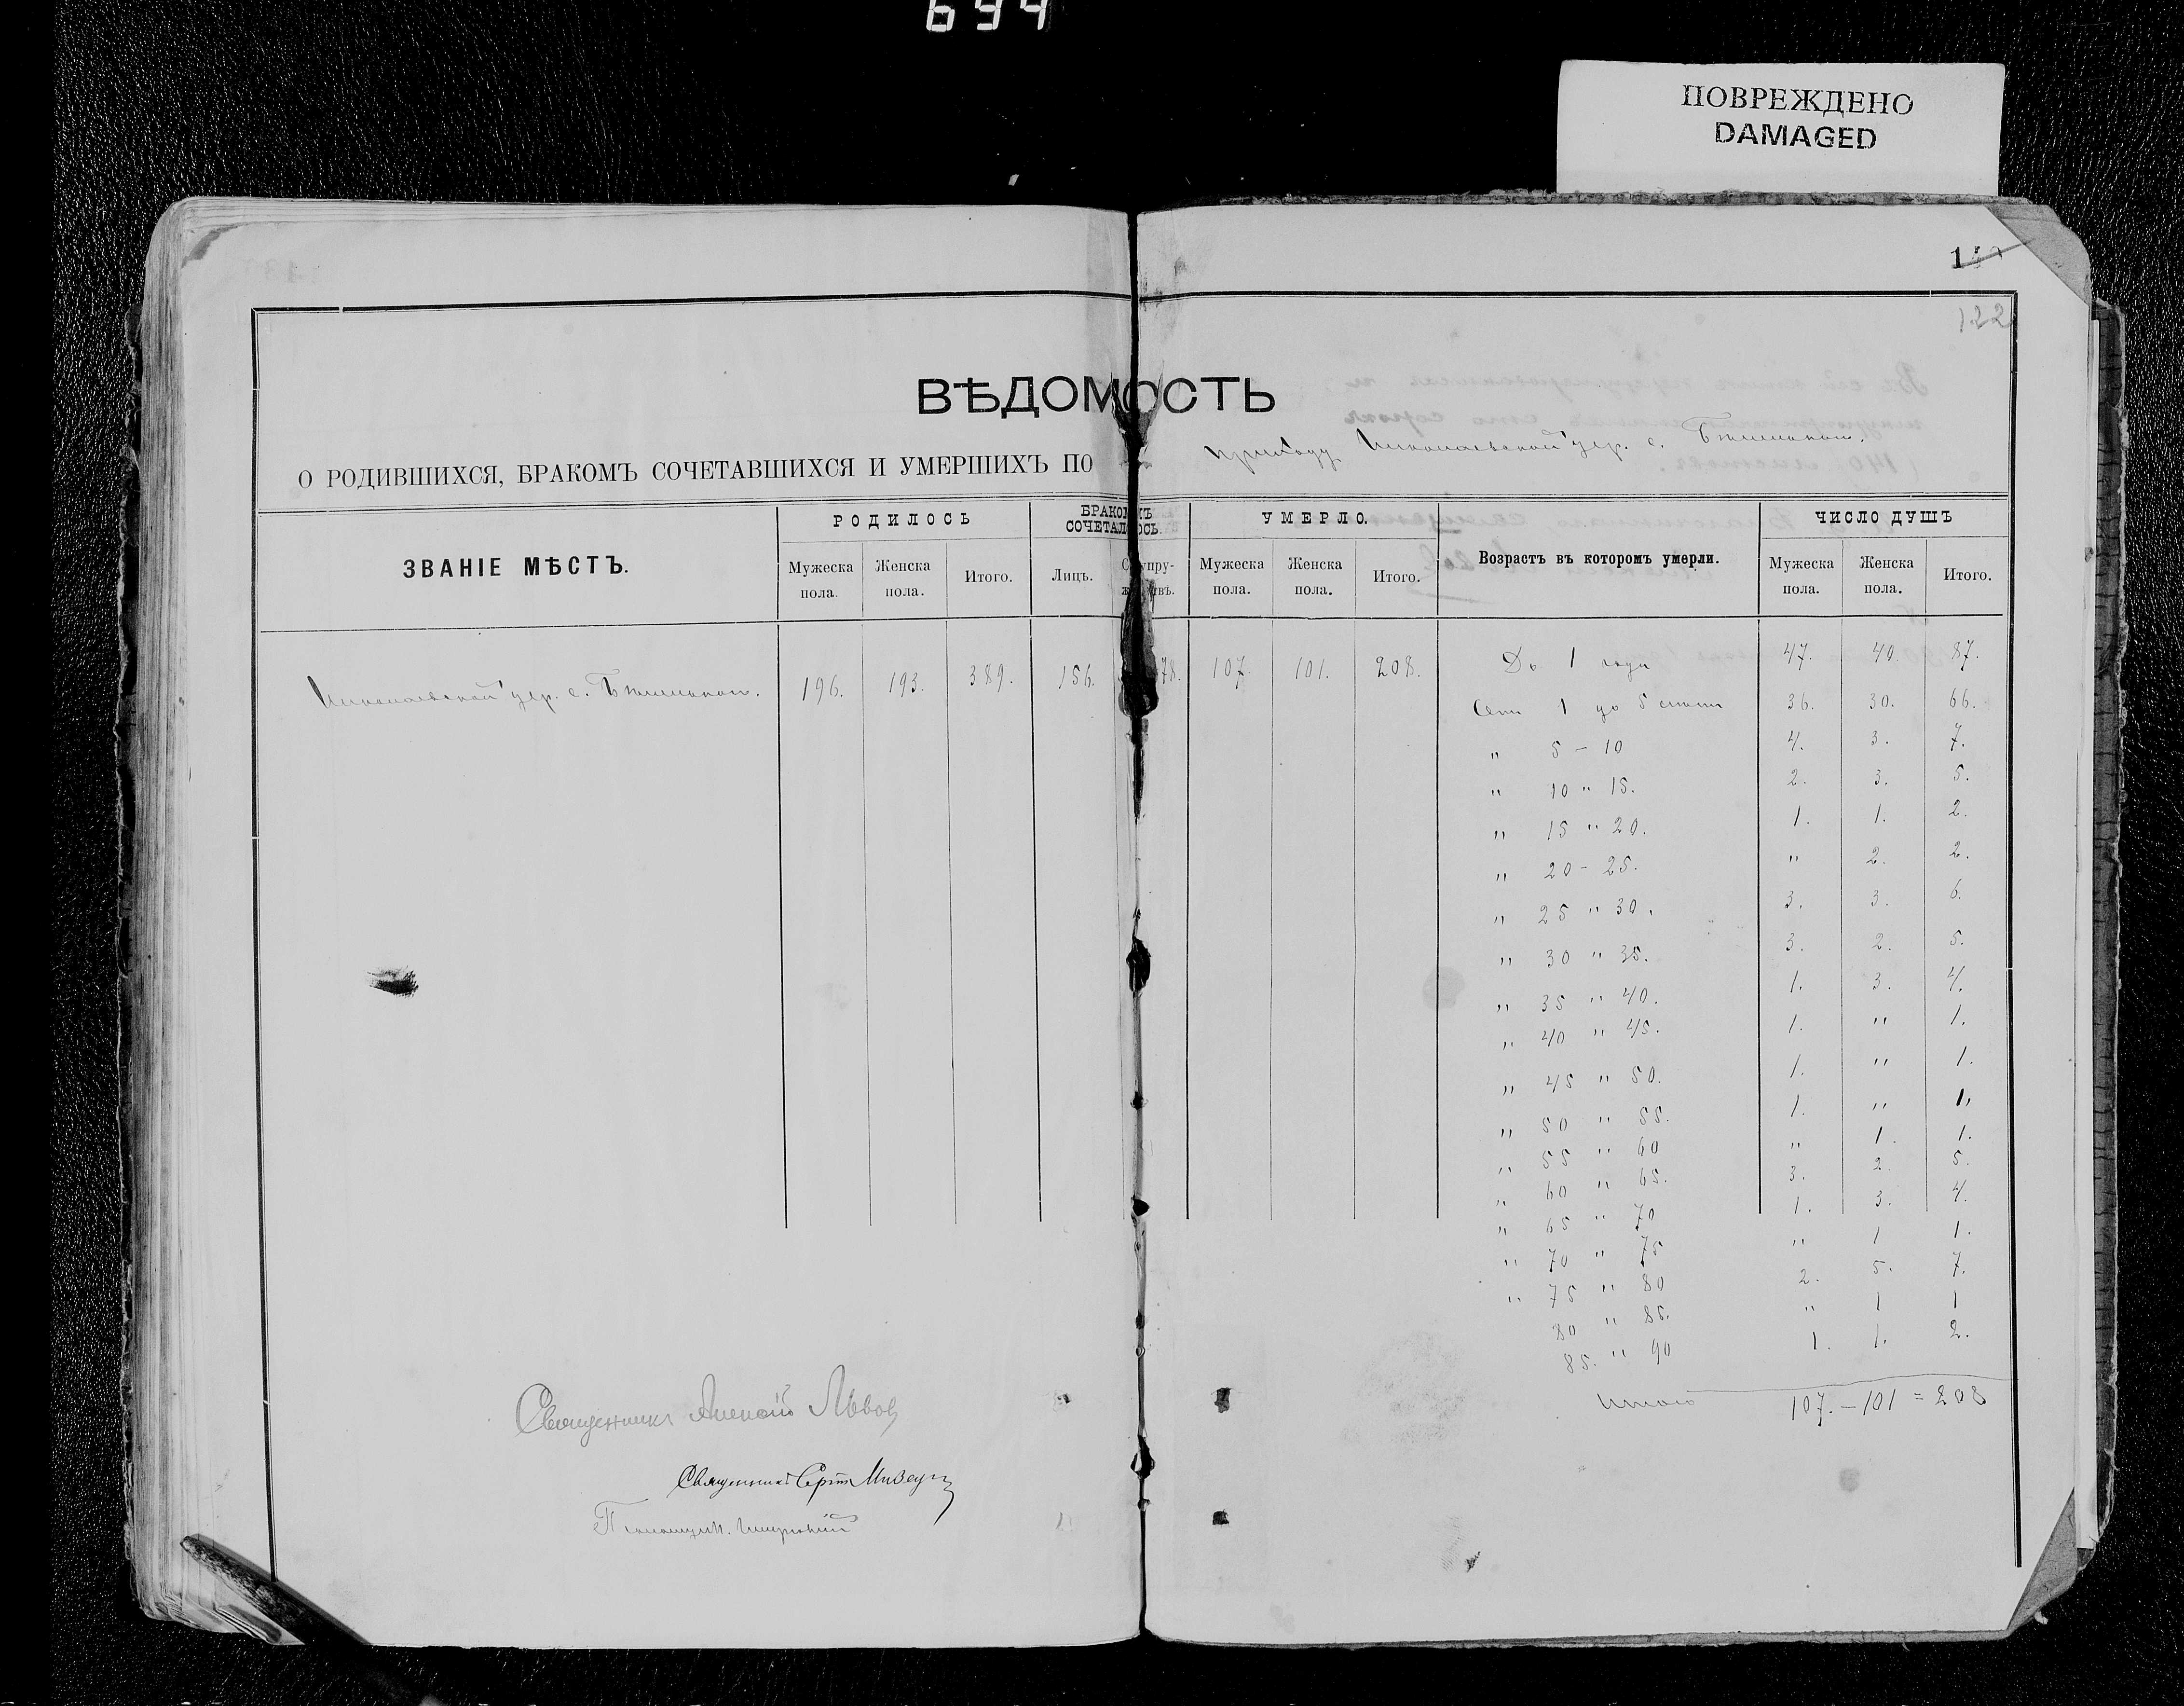 694
ПОВРЕЖДЕНО
DAMAGED
122
ВѢДОМОСТЬ
О РОДИВШИХСЯ, БРАКОМЪ СОЧЕТАВШИХСЯ И УМЕРШИХЪ ПО приходу Николаевской цер. с.
ЗВАНІЕ МѢСТЪ. РОДИЛОСЬ БРАКОМЪ СОЧЕТАЛОСЬ. УМЕРЛО. Возрастъ въ которомъ умерли. ЧИСЛО ДУШЪ
Мужеска пола. Женска пола. Итого. Лицъ. Супружествъ. Мужеска пола. Женска пола. Итого. Мужеска пола. Женска пола. Итого.
Николаевской цер. с. 196. 193. 389. 156. 78. 107. 101. 208. До 1 года 47. 40. 87.
Отъ 1 до 5 36. 30. 66.
" 5 - 10 4. 3. 7.
" 10 " 15. 2. 3. 5.
" 15 " 20. 1. 1. 2.
" 20 - 25. " 2. 2.
" 25 " 30. 3. 3. 6.
" 30 " 35. 3. 2. 5.
" 35 " 40. 1. 3. 4.
" 40 " 45. 1. " 1.
" 45 " 50. 1. " 1.
" 50 " 55. 1. " 1.
" 55 " 60 " 1. 1.
" 60 " 65. 3. 2. 5.
" 65 " 70 1. 3. 4.
" 70 " 75 " 1 1.
" 75 " 80 2. 5. 7.
80 " 85. " 1 1
85. " 90 1. 1. 2.
Итого 107. - 101 = 208
Священникъ Алексій Львов
Священникъ